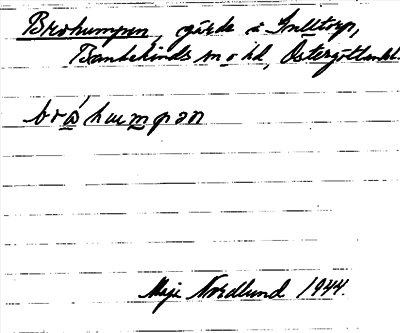 Brohumpen, gärde i Smlltorp,
Bankekinds sn o hd, Östergötland.
broá humpən
Maje Nordlund 1944.